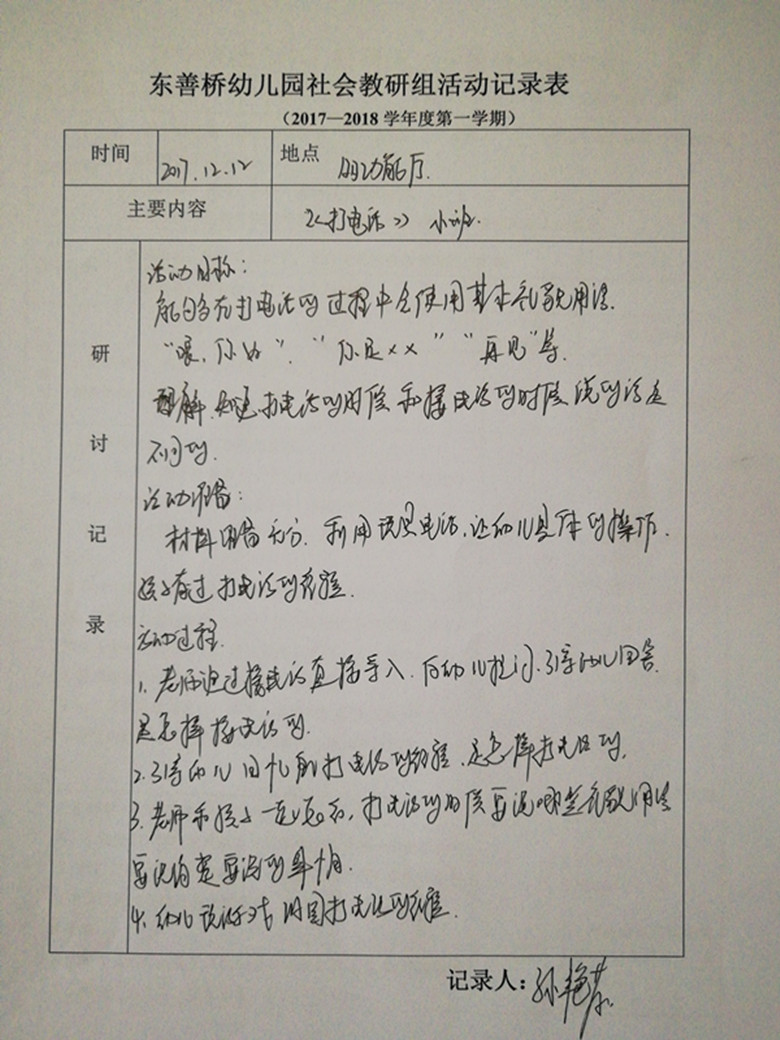 东善桥幼儿园社会教研组活动记录表
（2017—2018 学年度第一学期）
时间 2017.12.12 地点 多功能厅.
主要内容 《打电话》 小班.
研讨记录
活动目标：
能够在打电话的过程中会使用基本礼貌用语.
“喂，你好”，“你是××”“再见”等.
理解.知道打电话的时候和接电话的时候说的话是
不同的.
活动准备：
材料准备充分，利用玩具电话，让幼儿具体的操作.
孩子有过打电话的经验.
活动过程.
1. 老师通过接电话直接导入.向幼儿提问.引导幼儿回答.
是怎样接电话的.
2.引导幼儿回忆打电话的经验.是怎样打电话的.
3.老师和孩子一起总结，打电话的时候要说哪些礼貌用语
要说清楚要说的事情.
4.幼儿游戏 巩固打电话的经验.
记录人：孙艳